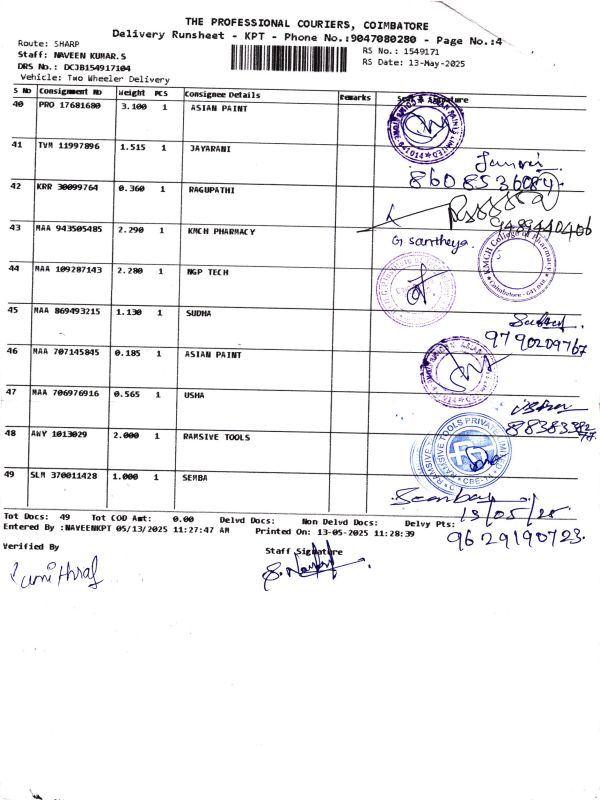 THE PROFESSIONAL COURIERS, COIMBATORE
Delivery Runsheet - KPT - Phone No.:9047080280 - Page No.:4
Route: SHARP
Staff: NAVEEN KUMAR.S
DRS No.: DCJB154917104
Vehicle: Two Wheeler Delivery
RS No.: 1549171
RS Date: 13-May-2025
S No Consignment No Weight PCS Consignee Details Remarks Signature
40 PRO 17681680 3.100 1 ASIAN PAINT
41 TVM 11997896 1.515 1 JAYARANI
8608536084
42 KRR 30099764 0.360 1 RAGUPATHI
9489440406
43 MAA 943505485 2.290 1 KMCH PHARMACY
G. santheya.
KMCH College of Pharmacy
Coimbatore - 641 048
44 MAA 109287143 2.280 1 NGP TECH
45 MAA 869493215 1.130 1 SUDHA
9790209767
46 MAA 707145845 0.185 1 ASIAN PAINT
47 MAA 706976916 0.565 1 USHA
48 AWY 1013029 2.000 1 RAMSIVE TOOLS
RAMSIVE TOOLS PRIVATE LIMITED
49 SLM 370011428 1.000 1 SEMBA
13/05/25
9629190723.
Tot Docs: 49 Tot COD Amt: 0.00 Delvd Docs: Non Delvd Docs: Delvy Pts:
Entered By :NAVEENKPT 05/13/2025 11:27:47 AM Printed On: 13-05-2025 11:28:39
Verified By Staff Signature